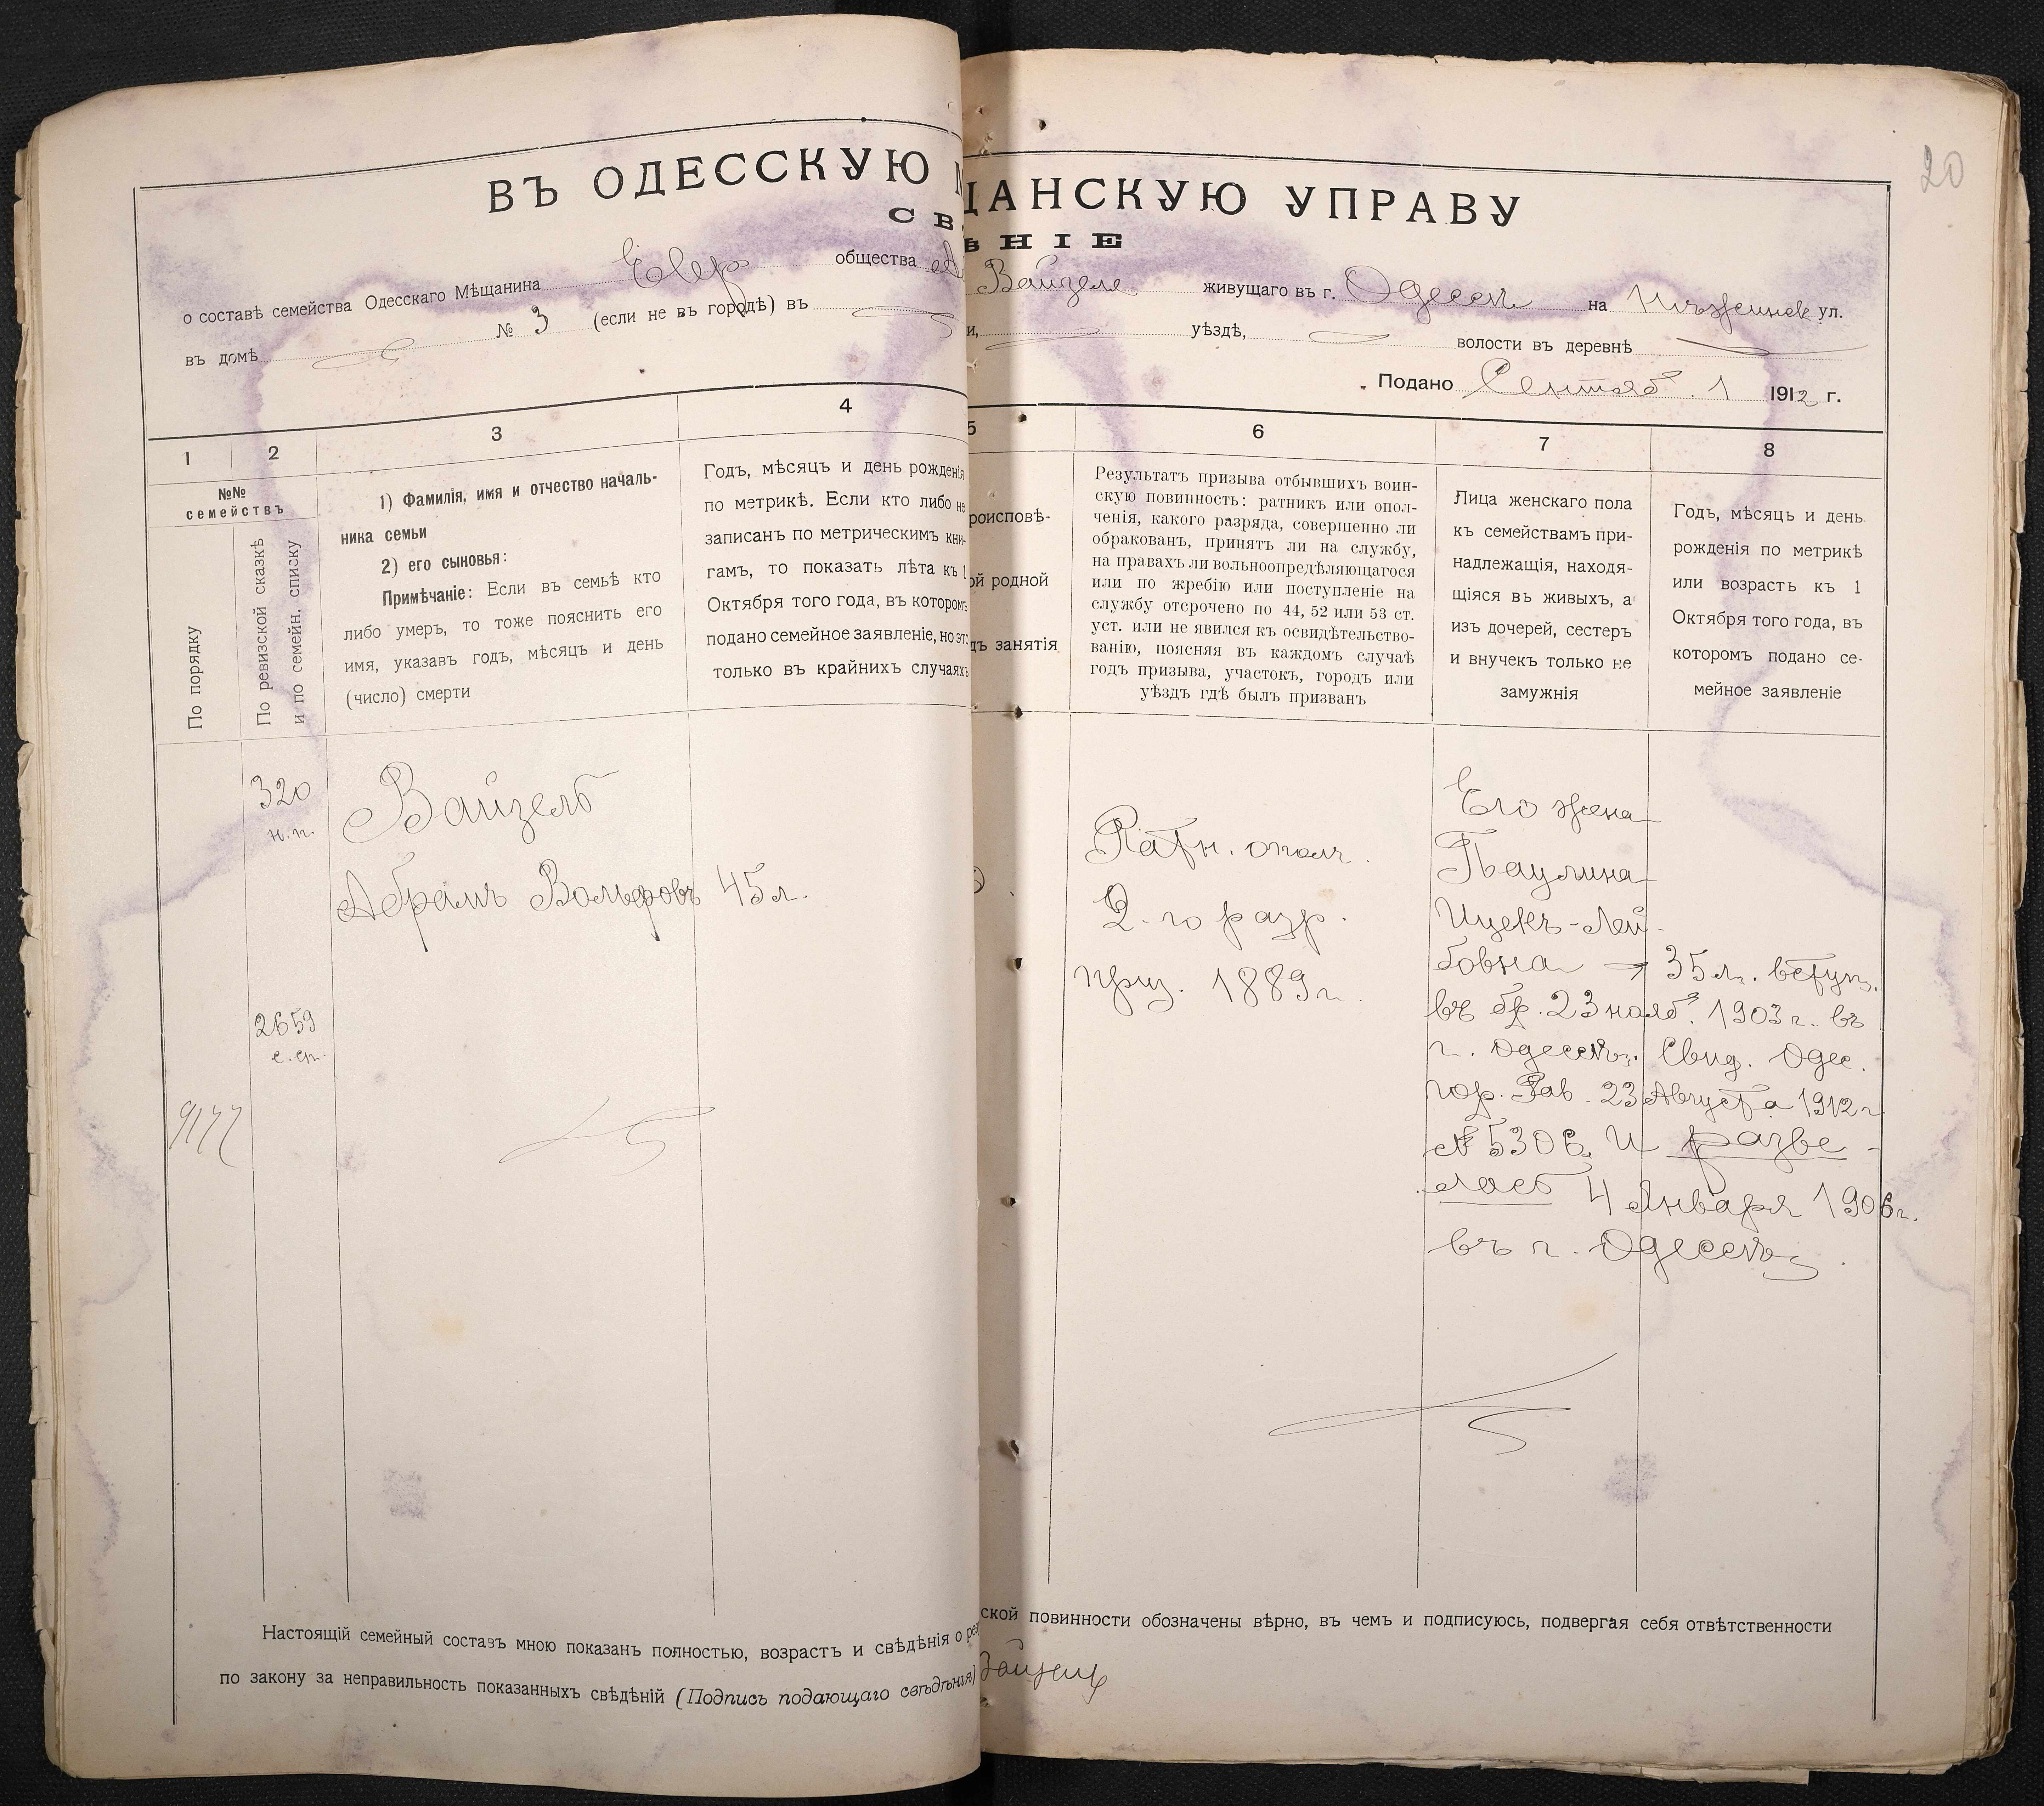 20
ВЪ ОДЕССКУЮ ЩАНСКУЮ УПРАВУ
СВ ѢНІЕ
о составѣ семейства Одесскаго Мѣщанина Евр общества А Вайзеля живущаго въ г. Одессѣ на Нѣжинск ул.
въ домѣ № 3 (если не въ городѣ) въ и, уѣздѣ, волости въ деревнѣ
Подано Сентяб. 1 1912 г.
1 2 3 4 5 6 7 8
№№
семействъ
По порядку
По ревизской сказкѣ
и по семейн. списку
1) Фамилія, имя и отчество началь-
ника семьи
2) его сыновья:
Примѣчаніе: Если въ семьѣ кто
либо умеръ, то тоже пояснить его
имя, указавъ годъ, мѣсяцъ и день
(число) смерти
Годъ, мѣсяцъ и день рожденія
по метрикѣ. Если кто либо не
записанъ по метрическимъ кни-
гамъ, то показать лѣта къ 1
Октября того года, въ которомъ
подано семейное заявленіе, но это
только въ крайнихъ случаяхъ
роисповѣ-
ой родной
дъ занятія
Результатъ призыва отбывшихъ воин-
скую повинность: ратникъ или опол-
ченія, какого разряда, совершенно ли
обракованъ, принятъ ли на службу,
на правахъ ли вольноопредѣляющагося
или по жребію или поступленіе на
службу отсрочено по 44, 52 или 53 ст.
уст. или не явился къ освидѣтельство-
ванію, поясняя въ каждомъ случаѣ
годъ призыва, участокъ, городъ или
уѣздъ гдѣ былъ призванъ
Лица женскаго пола
къ семействамъ при-
надлежащія, находя-
щіяся въ живыхъ, а
изъ дочерей, сестеръ
и внучекъ только не
замужнія
Годъ, мѣсяцъ и день
рожденія по метрикѣ
или возрастъ къ 1
Октября того года, въ
которомъ подано се-
мейное заявленіе
320
н.п.
2659
с.сп.
9177
Вайзель
Абрамъ Вольфовъ 45 л.
Ратн. ополч.
2-го разр.
приз. 1889 г.
Его жена
Паулина
Ицекъ-Лей-
бовна 35 л. вступ.
въ бр. 23 нояб. 1903 г. въ
г. Одессѣ. Свид. Одес.
гор. Рав. 23 Августа 1912 г
№ 5306. И разве-
лась 4 Января 1906 г.
въ г. Одессѣ.
Настоящій семейный составъ мною показанъ полностью, возрастъ и свѣдѣнія о рез ской повинности обозначены вѣрно, въ чемъ и подписуюсь, подвергая себя отвѣтственности
по закону за неправильность показанныхъ свѣдѣній (Подпись подающаго свѣдѣнія)